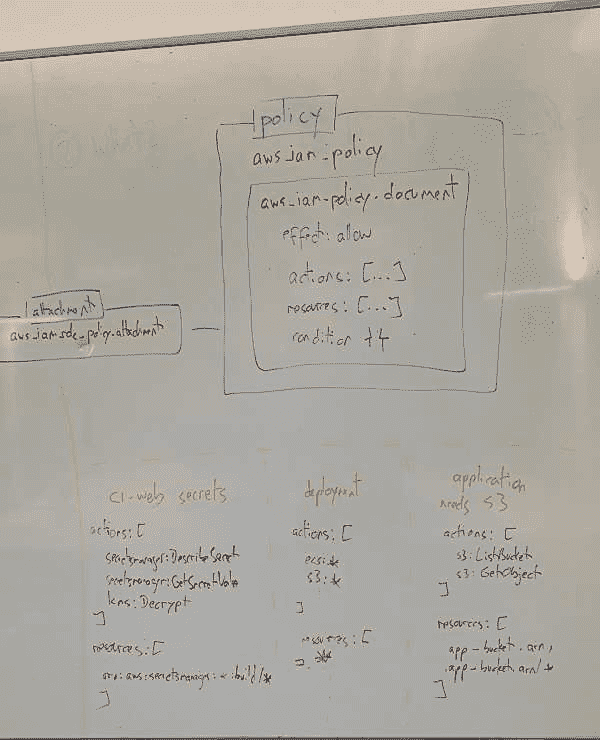 policy
aws_iam_policy
aws_iam_policy_document
effect: allow
actions: [...]
resources: [...]
condition {}
attachment
aws_iam_role_policy_attachment
CI-web secrets
actions: [
secretsmanager:DescribeSecret
secretsmanager:GetSecretValue
kms:Decrypt
]
resources: [
arn:aws:secretsmanager:<:build/*
]
deployment
actions: [
ecs:*
s3:*
]
resources: [
*
]
application
needs S3
actions: [
s3:ListBucket
s3:GetObject
]
resources: [
app-bucket.arn,
app-bucket.arn/*
]